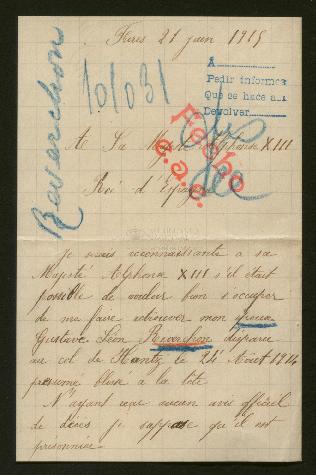 Reverchon
21 juin 1915
101031
A
Pedir informes
Que se hace así
Devolver
Fecho
A Sa Majesté Alphonse XIII
Roi d'Espagne
Je serais reconnaissante a sa
Majesté Alphonse XIII s'il était
possible de vouloir bien s'occuper
de me faire retrouver mon époux
Gustave Léon Reverchon disparu
au col de Hantz le 24 Aout 1914
présumé blessé a la tête
N'ayant reçu aucun avis officiel
de décès je suppose qu'il est
prisonnier.